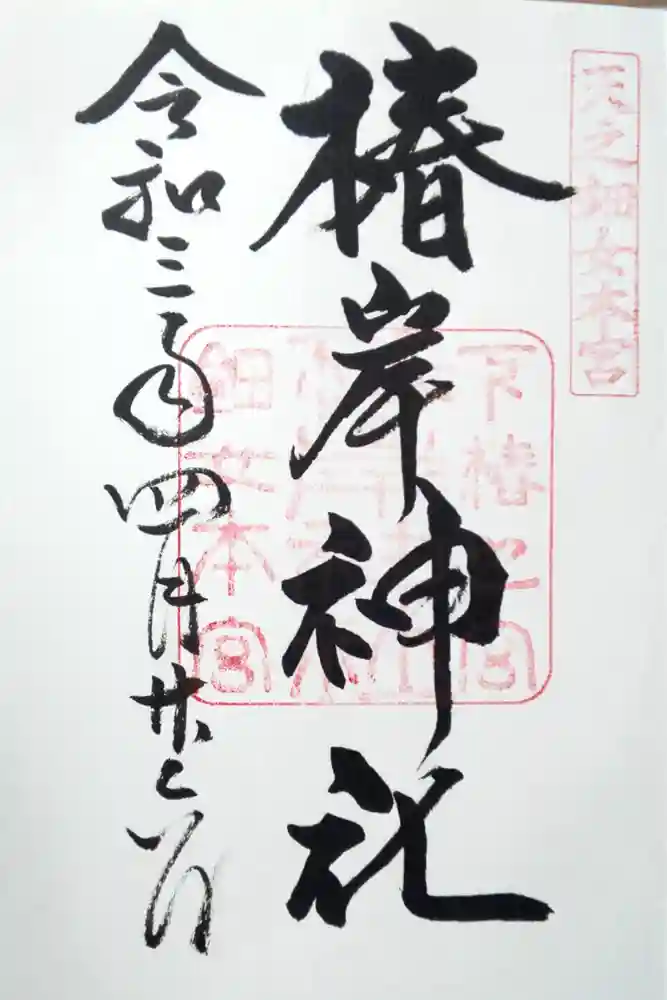 天之鈿女本宮
椿岸神社
下椿之宮
椿岸神社
鈿女本宮
令和三年四月廿日